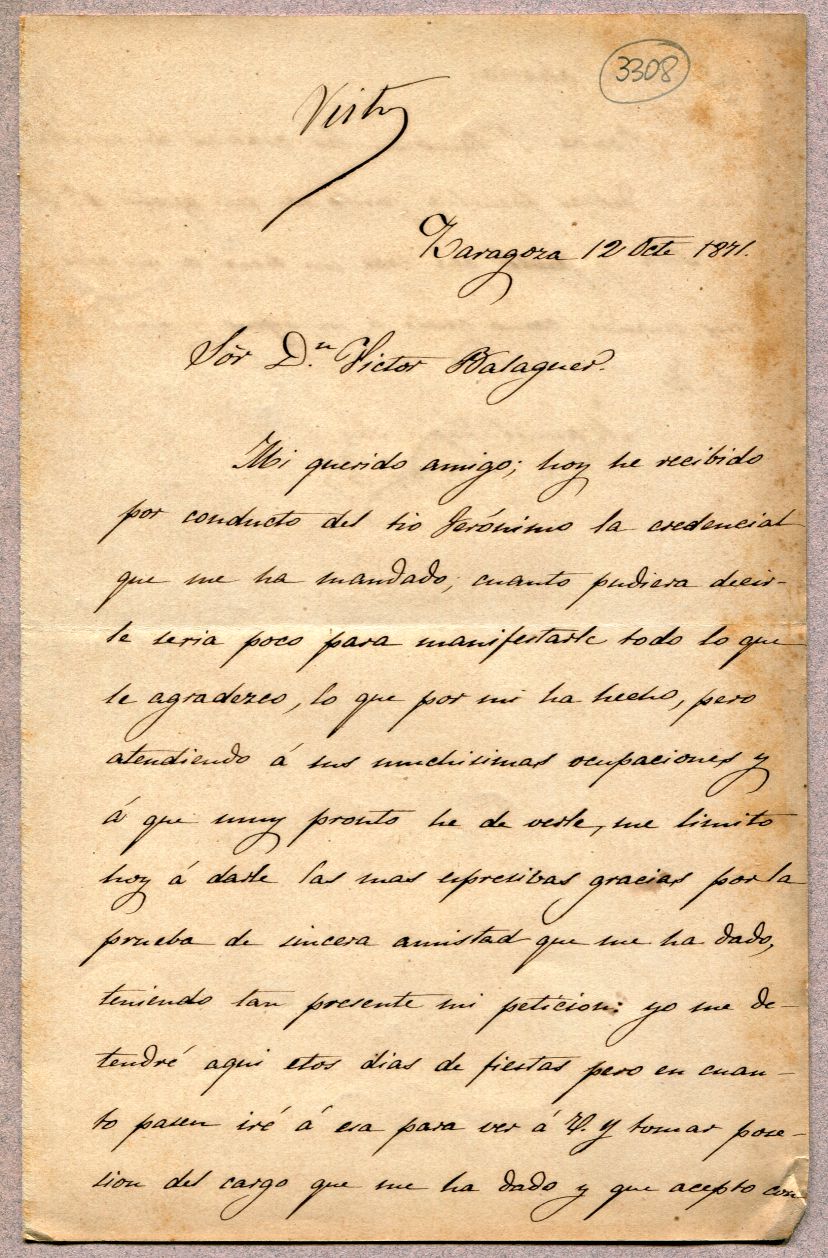 3308
Visto
Zaragoza 12 Octe 1871.
Sõr D.n Victor Balaguer.
Mi querido amigo; hoy he recibido
por conducto del tio Gerónimo la credencial
que me ha mandado; cuanto pudiera decir-
le seria poco para manifestarle todo lo que
le agradezco, lo que por mi ha hecho, pero
atendiendo á sus muchisimas ocupaciones y
á que muy pronto he de verle, me limito
hoy á darle las mas espresibas gracias por la
prueba de sincera amistad que me ha dado,
teniendo tan presente mi peticion: yo me de-
tendré aqui etos dias de fiestas pero en cuan-
to pasen iré á esa para ver á V. y tomar pose-
sion del cargo que me ha dado y que acepto con